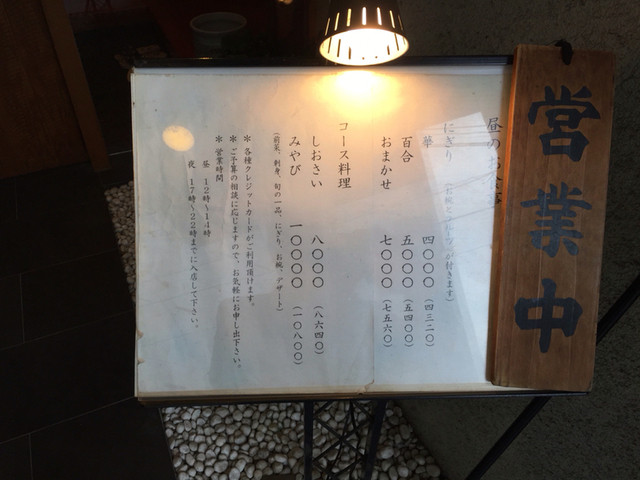 営業中
昼のお食事
にぎり (お椀とデザートが付きます)
華 四〇〇〇 (四三二〇)
百合 五〇〇〇 (五四〇〇)
おまかせ 七〇〇〇 (七五六〇)
コース料理
しおさい 八〇〇〇 (八六四〇)
みやび 一〇〇〇〇 (一〇八〇〇)
(前菜、刺身、旬の一品、にぎり、お椀、デザート)
＊各種クレジットカードがご利用頂けます。
＊ご予算の相談に応じますので、お気軽にお申し出下さい。
＊営業時間
昼 12時〜14時
夜 17時〜22時までに入店して下さい。